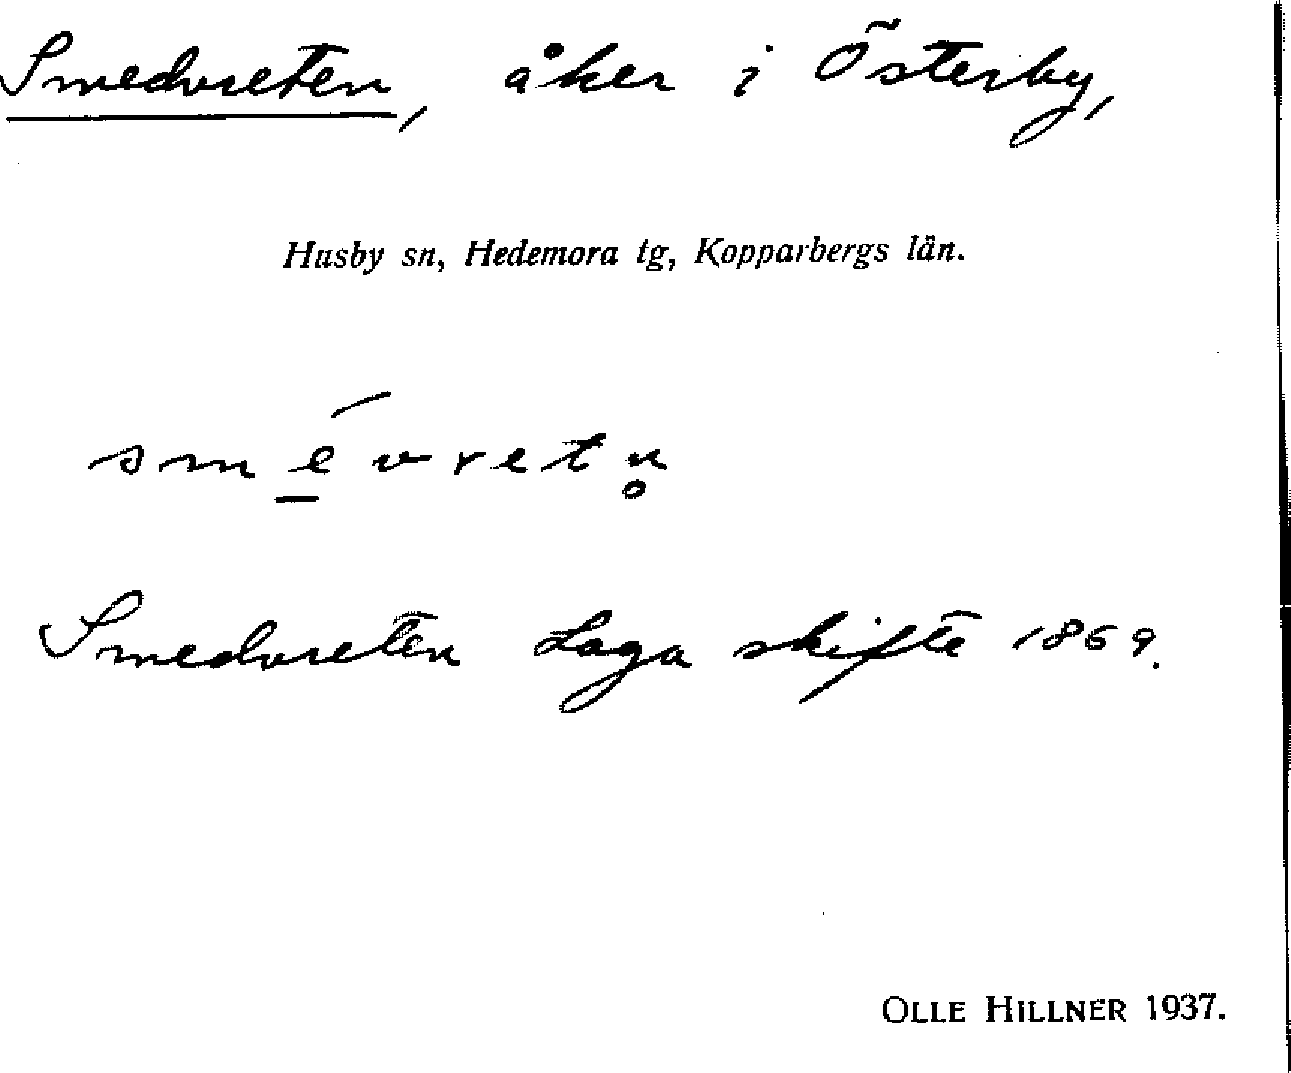 Smedvreten, åker i Österby,
Husby sn, Hedemora tg, Kopparbergs län.
smé̱vretn̥
Smedvreten Laga skifte 1869.
OLLE HILLNER 1937.